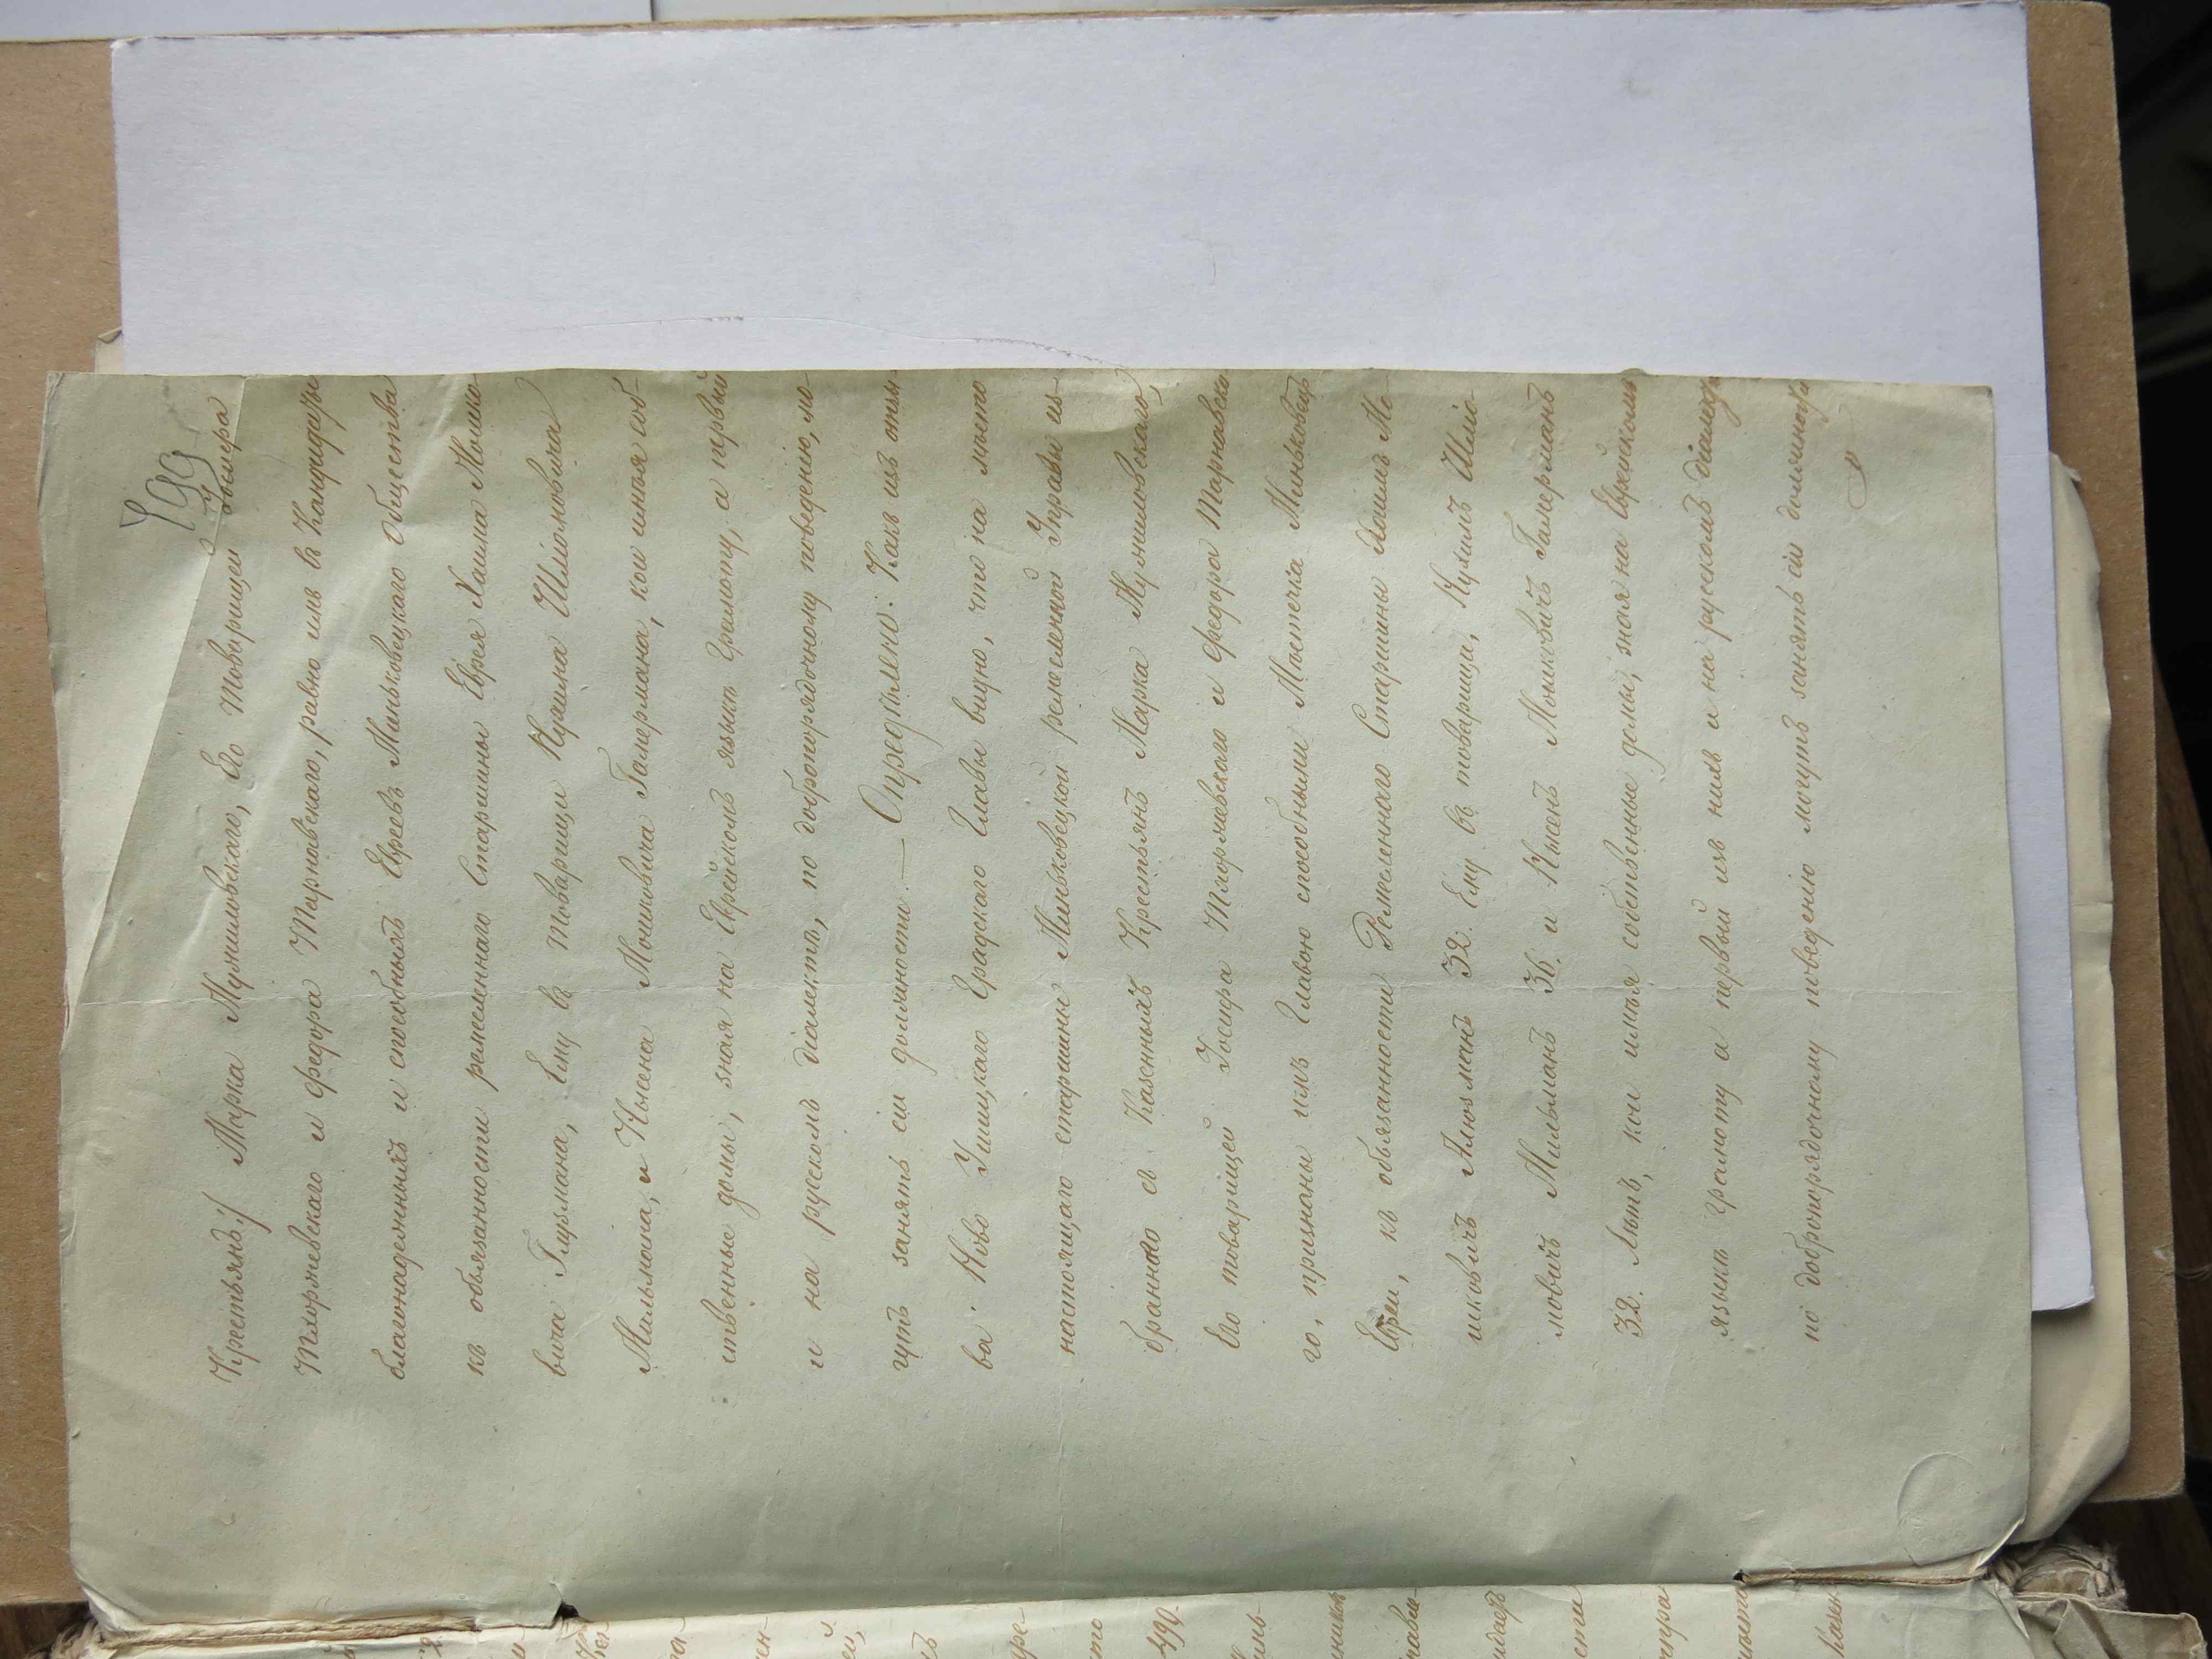 499
Крестьянъ:/ Марка Мумиловского, Его Товарищей Іосифа
Тхоржевского и Федора Тарновского, равно имъ въ Кандидаты
благонадежныхъ и способныхъ Евреевъ Миньковецкого Общества
къ обязанности ремесленнаго Старшины Еврея Хаима Мошко-
вича Глузмана, Ему въ Товарищи Кузина Шліомовича
Мильмана, и Нысена Мошковича Гамермана, кои имѣя соб-
ственные домы, зная на Еврейскомъ языкѣ Грамоту, а первый
и на рускомъ діалектѣ, по добропорядочному поведенію, мо-
гутъ занять сіи должности. — Опредѣлено: Какъ изъ отзы-
ва Ново Ушицкаго Градского Главы видно, что на мѣсто
настоящаго старшины Миньковецкой ремесленной Управы из-
браннаго съ Казенныхъ Крестьянъ Марка Мумиловского,
Его товарищей Іосифа Тхоржевского и Федора Тарновско-
го, признаны имъ Главою способными Мѣстечка Миньковецъ
Евреи, къ обязанности Ремесленнаго Старшины Хаимъ Мо-
шковичъ Глюзманъ 32. Ему въ товарища, Кузинъ Шліо-
мовичъ Мильманъ 36. и Нысенъ Мошковичъ Гамерманъ
32. Лѣтъ, кои имѣя собственные домы, зная на Еврейскомъ
языкѣ грамоту а первый изъ нихъ и на рускомъ діалектѣ
по добропорядочному поведенію могутъ занять сіи должности